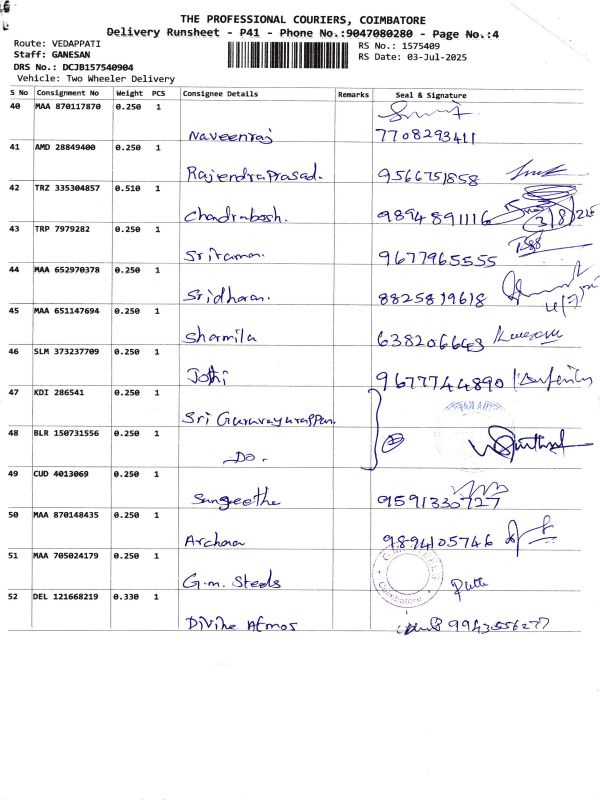 THE PROFESSIONAL COURIERS, COIMBATORE
Delivery Runsheet - P41 - Phone No.:9047080280 - Page No.:4
Route: VEDAPPATI
RS No.: 1575409
Staff: GANESAN
RS Date: 03-Jul-2025
DRS No.: DCJB157540904
Vehicle: Two Wheeler Delivery
S No Consignment No Weight PCS Consignee Details Remarks Seal & Signature
40 MAA 870117870 0.250 1
Naveenraj 7708293411
41 AMD 28849400 0.250 1
Rajendraprasad. 9566751858
42 TRZ 335304857 0.510 1
Chandrabosh. 9894891116
43 TRP 7979282 0.250 1
Sriraman. 9677965555
44 MAA 652970378 0.250 1
Sridharan. 8825819618
45 MAA 651147694 0.250 1
Sharmila 6382066643
46 SLM 373237709 0.250 1
Jothi 9677744890
47 KDI 286541 0.250 1
Sri Guruvayurappan.
48 BLR 150731556 0.250 1
Do.
49 CUD 4013069 0.250 1
Sangeetha 9591330727
50 MAA 870148435 0.250 1
Archana 9894105746
51 MAA 705024179 0.250 1
G.M. Steels
Coimbatore
52 DEL 121668219 0.330 1
Divine Atmos 9943556277